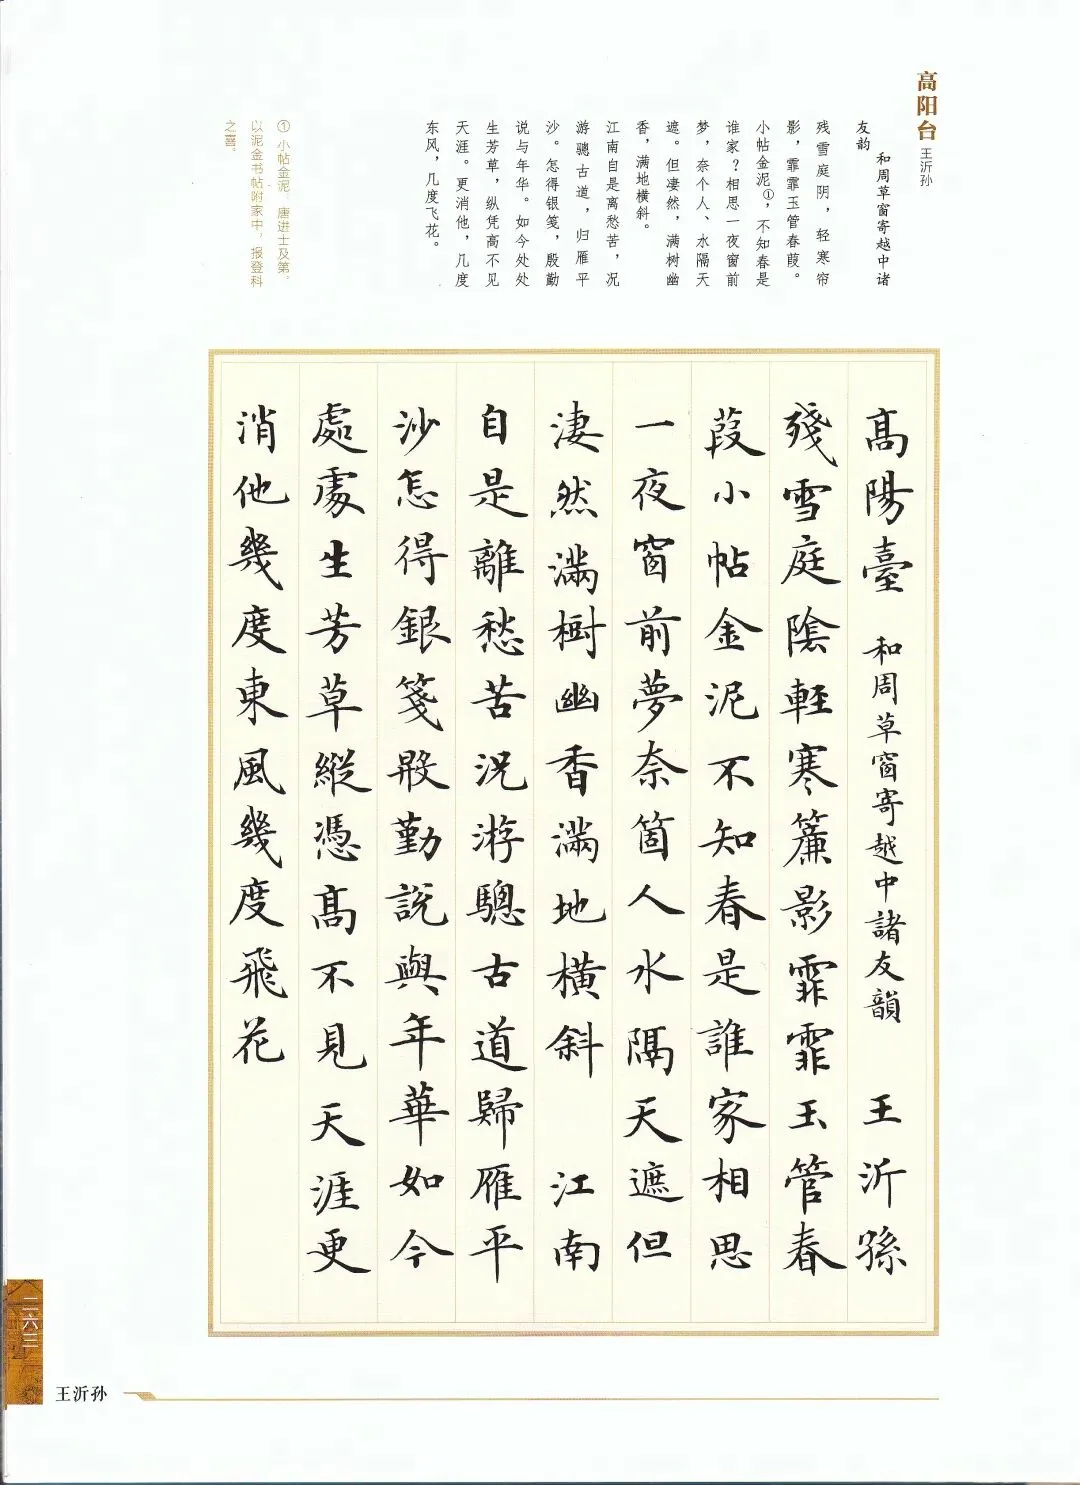 高阳台
王沂孙
和周草窗寄越中诸
友韵
残雪庭阴，轻寒帘
影，霏霏玉管春葭。
小帖金泥①，不知春是
谁家？相思一夜窗前
梦，奈个人、水隔天
遮。但凄然，满树幽
香，满地横斜。
江南自是离愁苦，况
游骢古道，归雁平
沙。怎得银笺，殷勤
说与年华。如今处处
生芳草，纵凭高不见
天涯。更消他，几度
东风，几度飞花。
① 小帖金泥：唐进士及第，
以泥金书帖附家中，报登科
之喜。
高陽臺 和周草窗寄越中諸友韻 王沂孫
殘雪庭陰輕寒簾影霏霏玉管春
葭小帖金泥不知春是誰家相思
一夜窗前夢奈箇人水隔天遮但
淒然滿樹幽香滿地橫斜 江南
自是離愁苦況游驄古道歸雁平
沙怎得銀箋殷勤說與年華如今
處處生芳草縱憑高不見天涯更
消他幾度東風幾度飛花
二六三
王沂孙